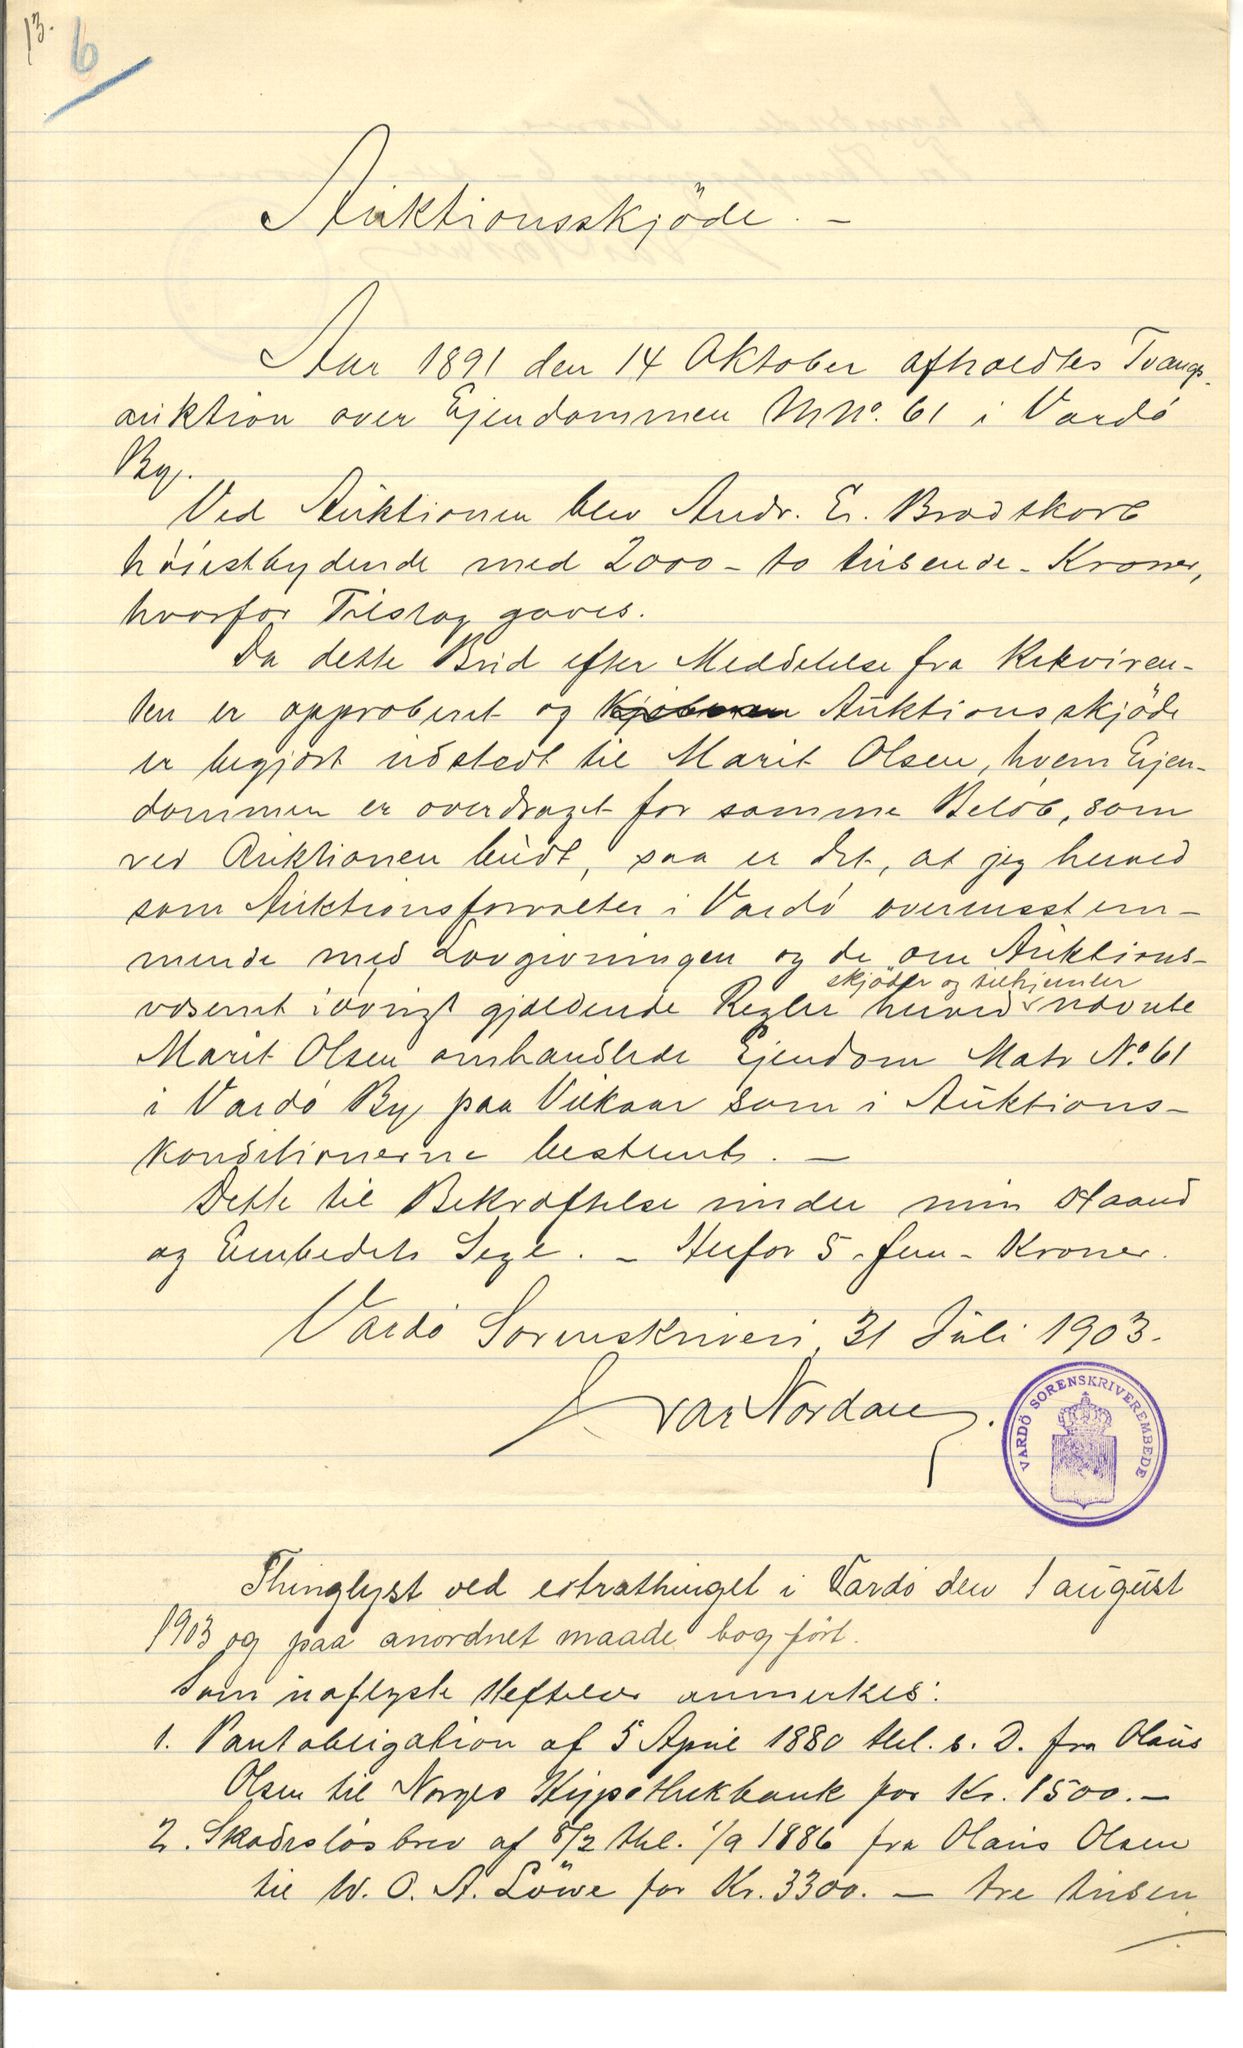 13.
6
Auktionsskjöde. –
Aar 1891 den 14 Oktober afholdtes Tvangs-
auktion over Ejendommen MNo. 61 i Vardö
By.
Ved Auktionen blev Andr. E. Brodtkorb
höiestbydende med 2000 – to tusende – Kroner,
hvorfor Tilslag gaves.
Da dette Bud efter Meddelelse fra Rekviren-
ten er approberet og Kjöberen Auktionsskjöde
er begjært udstedt til Marit Olsen, hvem Ejen-
dommen er overdraget for samme Belöb, som
ved Auktionen budt, saa er det, at jeg herved
som Auktionsforvalter i Vardö overensstem-
mende med Lovgivningen og de om Auktions-
skjöder og tilhjemler
væsenet iövrigt gjældende Regler herved nævnte
Marit Olsen omhandlede Ejendom Matr No. 61
i Vardö By paa Vilkaar som i Auktions-
konditionerne bestemt. –
Dette til Bekræftelse under min Haand
og Embedets Segl. – Herfor 5 – fem – Kroner.
Vardö Sorenskriveri 31 Juli 1903.
Ivar Nordang.
VARDÖ SORENSKRIVEREMBEDE
Thinglyst ved extrathinget i Vardö den 1 august
1903 og paa anordnet maade bogført.
Som uaflyste Heftelser anmerkes:
1. Pantobligation af 5 April 1880 thl. s. D. fra Olaus
Olsen til Norges Hypothekbank for Kr. 1500. –
2. Skadeslösbrev af 8/2 thl. 1/9 1886 fra Olaus Olsen
til W. O. A. Löwe for Kr. 3300. – tre tusen